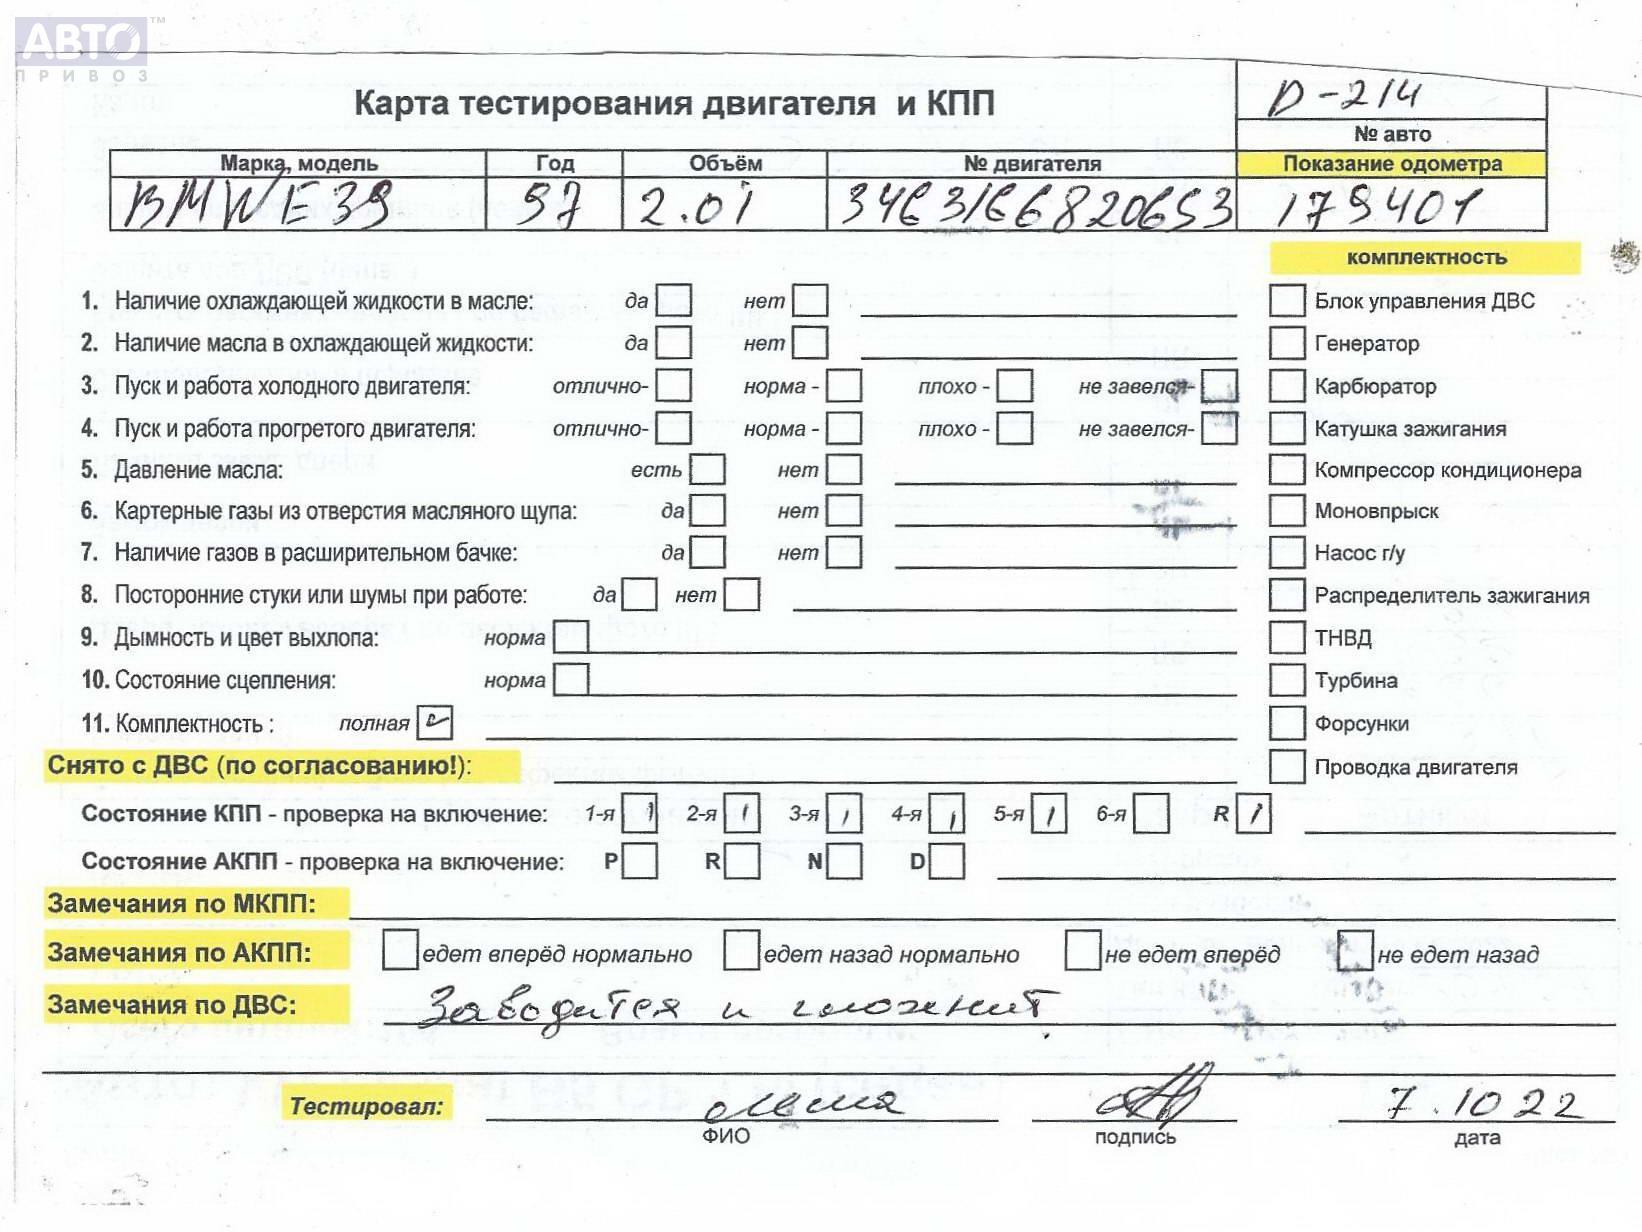 АВТО™
ПРИВОЗ
Карта тестирования двигателя и КПП
D-214
№ авто
Марка, модель Год Объём № двигателя Показание одометра
BMW E39 97 2.0i 3463166820653 179401
комплектность
1. Наличие охлаждающей жидкости в масле: да нет Блок управления ДВС
2. Наличие масла в охлаждающей жидкости: да нет Генератор
3. Пуск и работа холодного двигателя: отлично- норма - плохо - не завелся- Карбюратор
4. Пуск и работа прогретого двигателя: отлично- норма - плохо - не завелся- Катушка зажигания
5. Давление масла: есть нет Компрессор кондиционера
6. Картерные газы из отверстия масляного щупа: да нет Моновпрыск
7. Наличие газов в расширительном бачке: да нет Насос г/у
8. Посторонние стуки или шумы при работе: да нет Распределитель зажигания
9. Дымность и цвет выхлопа: норма ТНВД
10. Состояние сцепления: норма Турбина
11. Комплектность : полная Форсунки
Снято с ДВС (по согласованию!): Проводка двигателя
Состояние КПП - проверка на включение: 1-я 2-я 3-я 4-я 5-я 6-я R
Состояние АКПП - проверка на включение: P R N D
Замечания по МКПП:
Замечания по АКПП: едет вперёд нормально едет назад нормально не едет вперёд не едет назад
Замечания по ДВС: Заводится и глохнит
Тестировал: 7.10 22
ФИО подпись дата